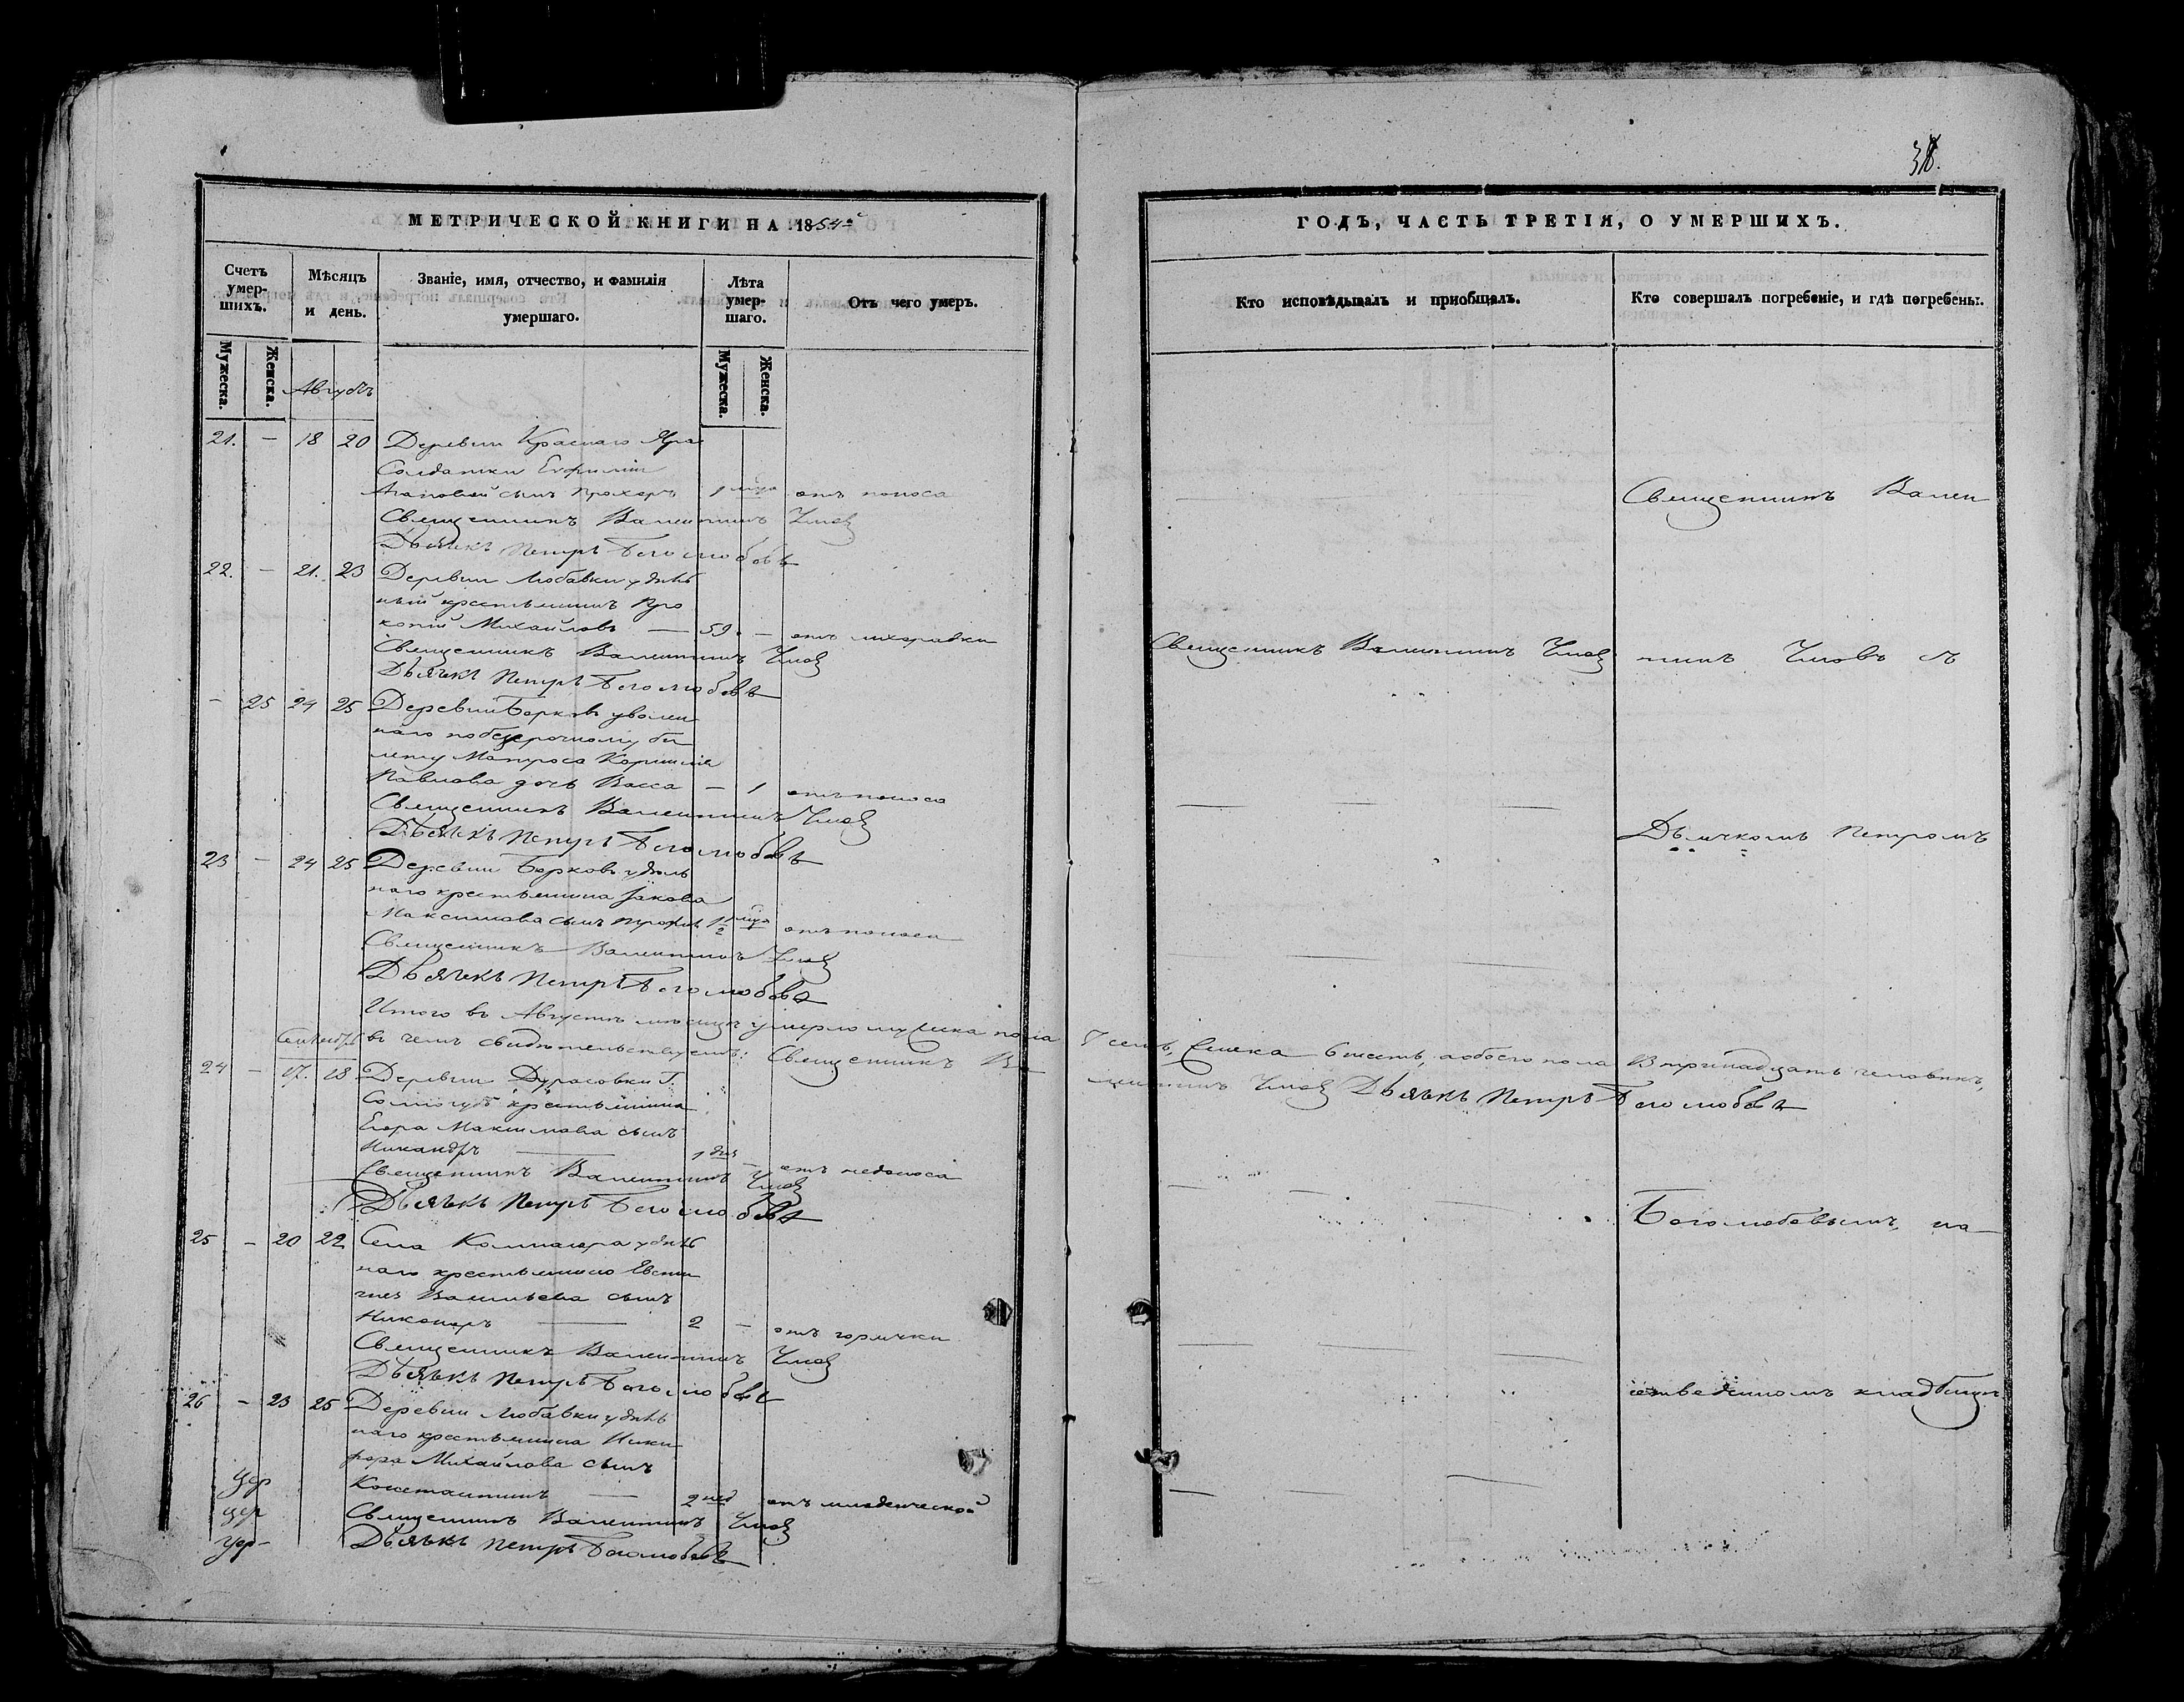 38.
МЕТРИЧЕСКОЙ КНИГИ НА 1854й
ГОДЪ, ЧАСТЬ ТРЕТІЯ, О УМЕРШИХЪ.
Счетъ умер-шихъ.
Мѣсяцъ и день.
Званіе, имя, отчество, и фамилія умершаго.
Лѣта умер-шаго.
Отъ чего умеръ.
Кто исповѣдывалъ и пріобщалъ.
Кто совершалъ погребеніе, и гдѣ погребены.
Мужеска.
Женска.
Августъ
Мужеска.
Женска.
21. — 18 20 Деревни Краснаго Яра
Солдатки Евфиміи
Агаповой сынъ Прохоръ 1 отъ поноса
Священникъ Вален
Священникъ Валентинъ Умовъ
Дьячекъ Петръ Боголюбовъ
22. — 21. 23 Деревни Любавки удѣль
ный крестьянинъ Про
копій Михайловъ — 59. — отъ лихорадки
Священникъ Валентинъ Умовъ
тинъ Умовъ съ
Священникъ Валентинъ Умовъ
Дьячекъ Петръ Боголюбовъ
— 25 24 25 Деревни Борковъ уволен
наго по безсрочному би
лету Матроса Корнилія
Павлова дочь Васса — 1 отъ поноса
Священникъ Валентинъ Умовъ
Дьячкомъ Петромъ
Дьячекъ Петръ Боголюбовъ
23 — 24 25 Деревни Борковъ удѣль
наго крестьянина Іакова
Максимова сынъ 1½ отъ поноса
Священникъ Валентинъ Умовъ
Дьячекъ Петръ Боголюбовъ
Итого въ Августѣ мѣсяцѣ умерло мужеска пола 7 семь, женска 6 шесть, а обоего пола 13 тринадцать человѣкъ,
Сентябрь
въ чемъ свидѣтельствуемъ: Священникъ Валентинъ Умовъ Дьячекъ Петръ Боголюбовъ
24 — 17. 18 Деревни Дурасовки Г.
крестьянина
Егора Максимова сынъ
Никандръ — 1 день — отъ недоноса
Священникъ Валентинъ Умовъ
Дьячекъ Петръ Боголюбовъ
Боголюбовымъ, на
25 — 20 22 Села удѣль
наго крестьянина Евсти
гнея Васильева сынъ
Никаноръ — 2 — отъ горячки
Священникъ Валентинъ Умовъ
Дьячекъ Петръ Боголюбовъ
отведенномъ кладбищѣ
26 — 23 25 Деревни Любавки удѣль
наго крестьянина Ники
фора Михайлова сынъ
Константинъ — 2 нед отъ младенческой
Священникъ Валентинъ Умовъ
Дьячекъ Петръ Боголюбовъ